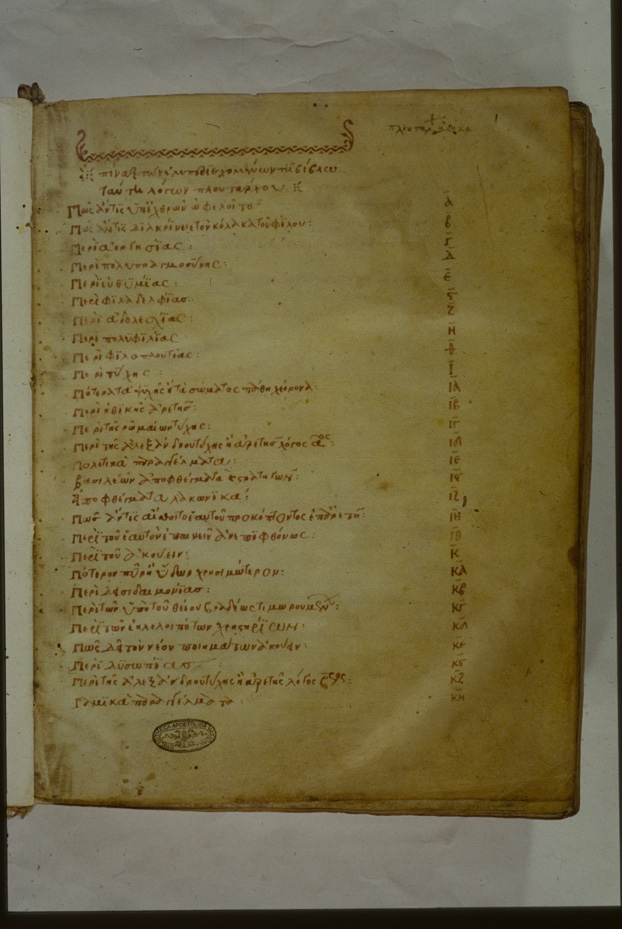 πίναξ τῶν ἐμπεριεχομένων τῆ βίβλω
ταύτη λόγων πλουτάρχου
Πῶς ἄν τις ὑπ' ἐχθρῶν ὠφελοῖτο α
Πῶς ἄν τις διακρίνειε τὸν κόλακα τοῦ φίλου: β
Περὶ ἀοργησίας: γ
Περὶ πολυπραγμοσύνης: δ
Περὶ εὐθυμίας: ε
Περὶ φιλαδελφίας ϛ
Περὶ ἀδολεσχίας: ζ
Περὶ πολυφιλίας: η
Περὶ φιλοπλουτίας: θ
Περὶ τύχης: ι
Πότερα τὰ ψυχῆς ἢ τὰ σώματος πάθη χείρονα ια
Περὶ ἠθικῆς ἀρετῆς: ιβ
Περὶ τῆς ῥωμαίων τύχης: ιγ
Περὶ τῆς ἀλεξάνδρου τύχης ἢ ἀρετῆς λόγος α: ιδ
Πολιτικὰ παραγγέλματα: ιε
βασιλέων ἀποφθέγματα ϛ στρατηγῶν: ιϛ
Ἀποφθέγματα λακωνικά: ιζ
Πῶς ἄν τις αἴσθοιτο ἑαυτοῦ προκόπτοντος ἐπ' ἀρετῆ: ιη
Περὶ τοῦ ἑαυτὸν ἐπαινεῖν ἀνεπιφθόνως: ιθ
Περὶ τοῦ ἀκούειν: κ
Πότερον πῦρ ἢ ὕδωρ χρησιμώτερον: κα
Περὶ δεισιδαιμονίας: κβ
Περὶ τῶν ὑπὸ τοῦ θείου βραδέως τιμωρουμένων: κγ
Περὶ τῶν ἐκλελοιπότων χρηστηρίων: κδ
Πῶς δεῖ τὸν νέον ποιημάτων ἀκούειν: κε
Περὶ δυσωπίας κϛ
Περὶ τῆς ἀλεξάνδρου τύχης ἢ ἀρετῆς λόγος κζ
Γαμικὰ παραγγέλματα κη